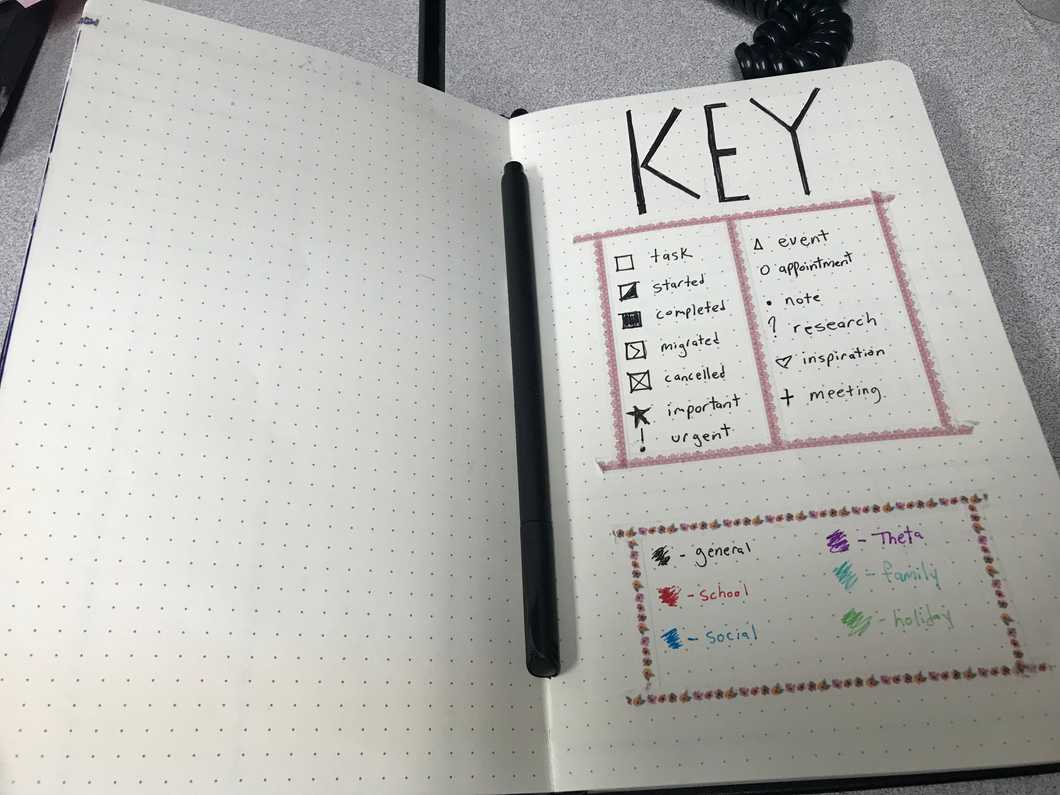 KEY
task
started
completed
migrated
cancelled
important
! urgent
event
O appointment
• note
? research
inspiration
+ meeting
- general
- school
- social
- Theta
- family
- holiday